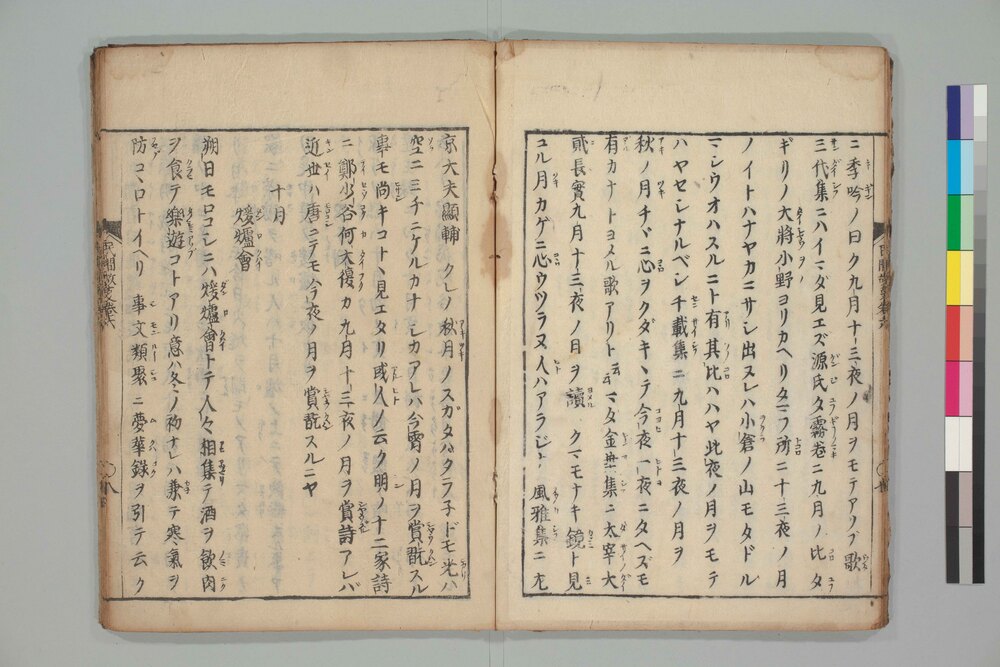 ニ季吟ノ曰ク九月十三夜ノ月ヲモテアソブ歌
三代集ニハイマダ見エズ源氏夕霧巻ニ九月ノ比タ
ギリノ大將小野ヨリカヘリタマフ所ニ十三夜ノ月
ノイトハナヤカニサシ出ヌレハ小倉ノ山モタドル
マシウオハスルニト有其比ハハヤ此夜ノ月ヲモテ
ハヤセシナルベシ千載集ニ九月十三夜ノ月ヲ
秋ノ月チヾニ心ヲクダキキテ今夜一夜ニタヘズモ
有カナトヨメル歌アリト云マタ金葉集ニ太宰大
貳長實九月十三夜ノ月ヲ讀 クマモナキ鏡ト見
ユル月カゲニ心ウツラヌ人ハアラジト 風雅集ニ左
京大夫顯輔 クレノ秋月ノスガタハタラ子ドモ光ハ
空ニミチニケルカナトカアレハ今宵ノ月ヲ賞翫スル
事モ尚キコトヽ見エタリ或人ノ云ク明ノ十二家詩
ニ鄭少谷何大復カ九月十三夜ノ月ヲ賞詩アレバ
近世ハ唐ニテモ今夜ノ月ヲ賞翫スルニヤ
十月
煖爐會
朔日モロコシニハ煖爐會トテ人々相集テノ酒ヲ飲肉
ヲ食テ樂遊コトアリ意ハ冬ノ初ナレハ兼テ寒氣ヲ
防コヽロトイヘリ 事文類聚ニ夢華錄ヲ引テ云ク